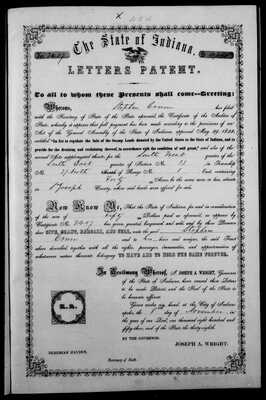 The State of Indiana.
LETTERS PATENT.
To all to whom these Presents shall come—Greeting:
Whereas, Stephen has filed
with the Secretary of the State the Certificate of the Auditor of
State, whereby it appears that full payment has been made according to the provisions of an
Act of the General Assembly of the State of Indiana approved May 29, 1852,
entitled "An Act to regulate the Sale of the Swamp Lands donated by the United States to the State of Indiana, and to
provide for the draining and reclaiming thereof, in accordance with the condition of said grant," and also of the
several Acts supplementary thereto for the South West quarter of the
South West quarter of Section No. 11 in Township
No. 37 North of Range No. 1 containing
Forty Acres be the same more or less, situate
in St Joseph County, where said lands were offered for sale.
Now Know Ye, That the State of Indiana, for and in consideration
of the sum of Fifty Dollars paid as aforesaid, as appears by
Certificate No. has given, granted, bargained and sold, and by these Presents
does GIVE, GRANT, BARGAIN, AND SELL, unto the said Stephen
and to heirs and assigns, the said Tract
above described, together with all the rights, privileges, immunities, and appurtenances of
whatsoever nature thereunto belonging TO HAVE AND TO HOLD THE SAME FOREVER.
In Testimony Whereof, I, JOSEPH A. WRIGHT, Governor
of the State of Indiana, have caused these Letters
to be made Patent, and the Seal of the State to
be hereunto affixed.
Given under my hand, at the City of Indianapolis, the day of November, in
the year of our Lord, one thousand eight hundred and
fifty three, and of the State the thirty-eighth.
BY THE GOVERNOR.
JOSEPH A. WRIGHT.
L.S.
NEHEMIAH HAYDEN,
Secretary of State.